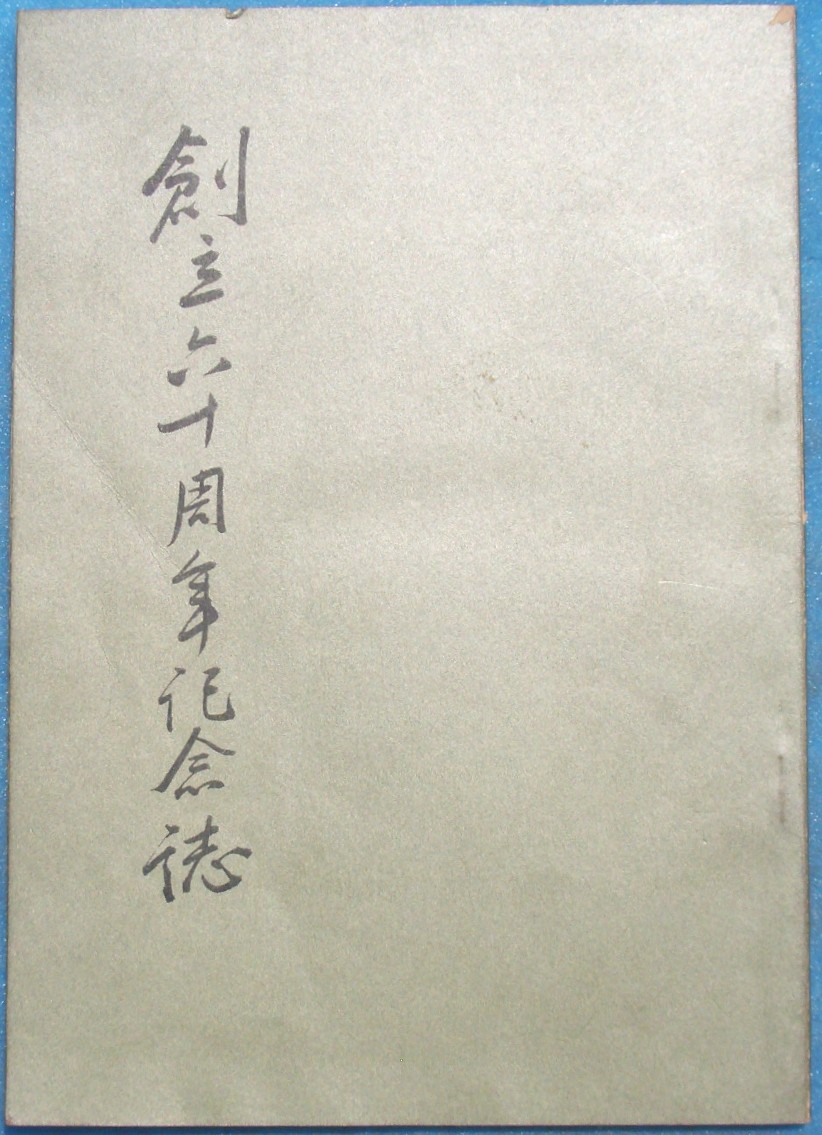 創立六十周年記念誌